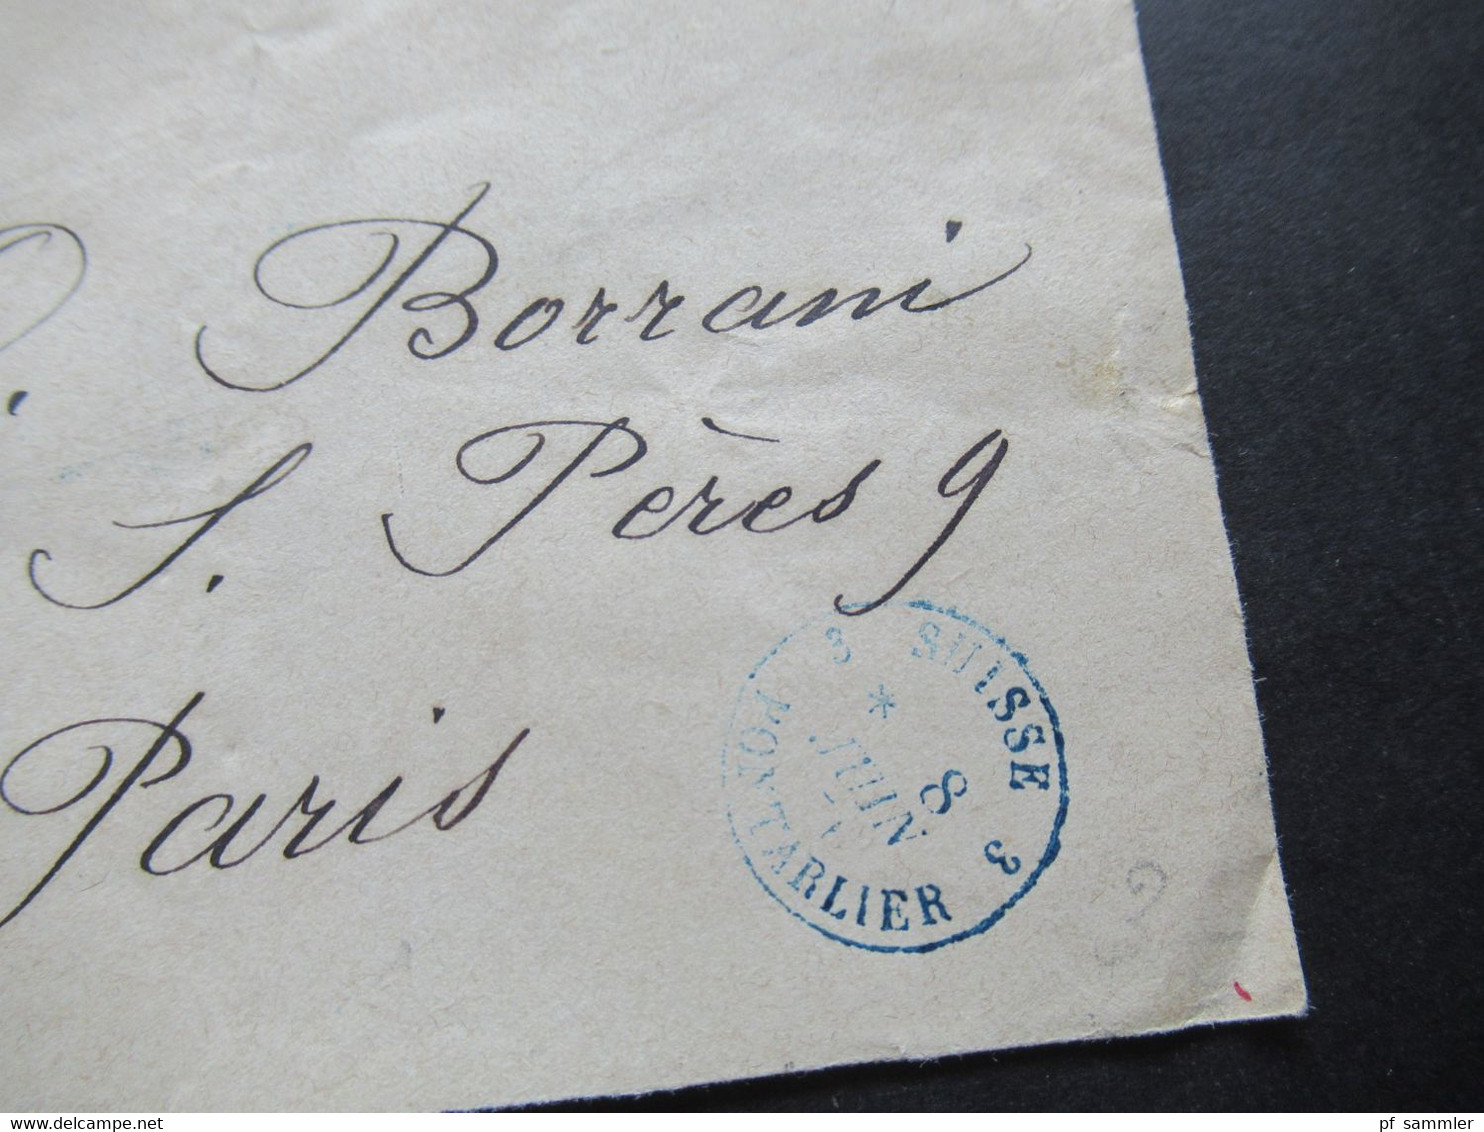 Borrani
S. Pères 9
Paris
3 SUISSE 3
PONTARLIER
*
8
JUIN
3
pf sammler